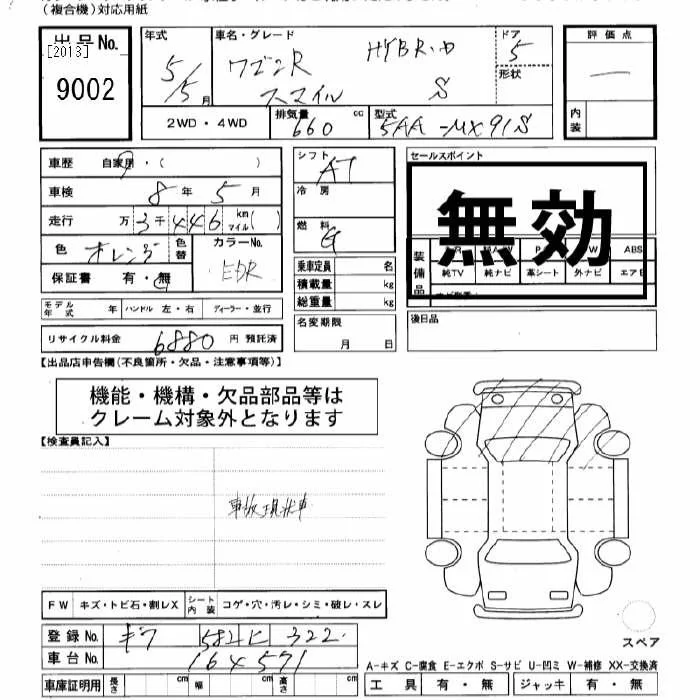 (複合機)対応用紙
出品No.
[2013]
9002
年式
5/5月
車名・グレード
ワゴンR
スマイル
HYBRID
S
ドア
5
形状
評価点
内装
2WD・4WD
排気量
660 cc
型式
5AA-MX91S
車歴 自家用・( )
車検 8年5月
走行 万3千446 km マイル( )
色 オレンジ
色替
カラーNo.
保証書 有・無
モデル年式 年 ハンドル 左・右 ディーラー・並行
リサイクル料金 6880 円 預託済
シフト
AT
冷房
燃料
G
乗車定員 名
積載量 kg
総重量 kg
名変期限
月 日
セールスポイント
無効
装備品
ABS
純TV 純ナビ 革シート 外ナビ エアB
後日品
【出品店申告欄(不良箇所・欠品・注意事項等)】
機能・機構・欠品部品等は
クレーム対象外となります
【検査員記入】
事故現状車
FW キズ・トビ石・割レX シート内装 コゲ・穴・汚レ・シミ・破レ・スレ
登録No. 582 ヒ 322
車台No. 164571
車庫証明用 長さ cm 幅 cm 高さ cm
スペア
A-キズ C-腐食 E-エクボ S-サビ U-凹ミ W-補修 XX-交換済
工具 有・無 ジャッキ 有・無